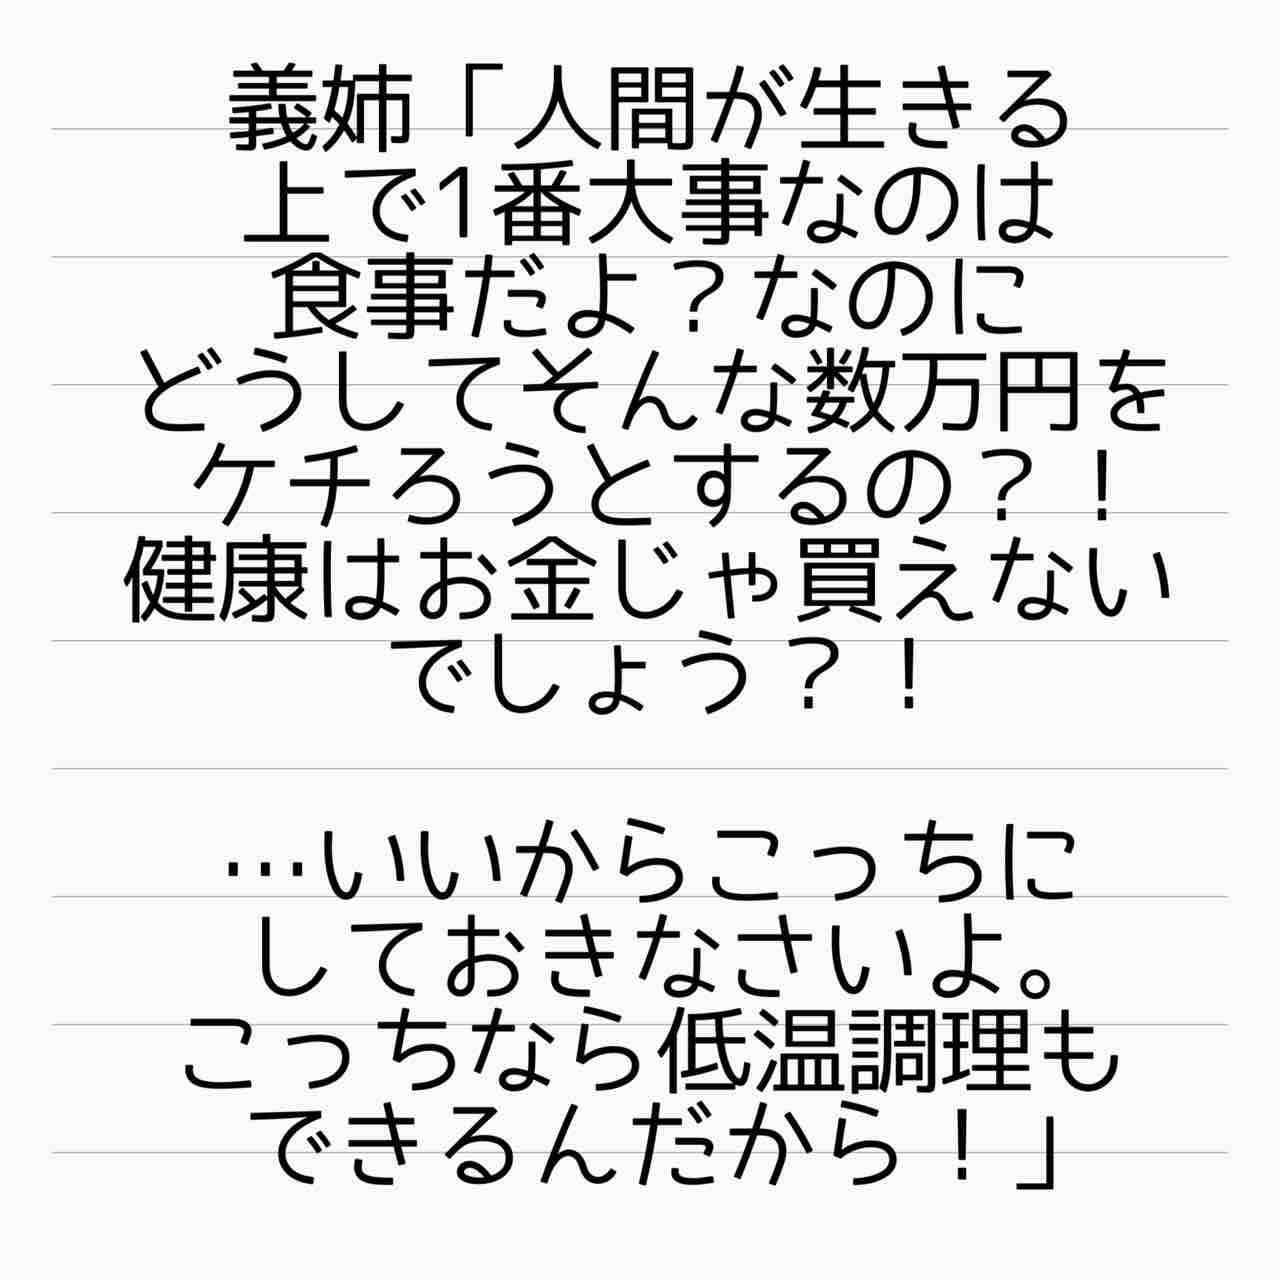 義姉「人間が生きる
上で1番大事なのは
食事だよ？なのに
どうしてそんな数万円を
ケチろうとするの？！
健康はお金じゃ買えない
でしょう？！
…いいからこっちに
しておきなさいよ。
こっちなら低温調理も
できるんだから！」